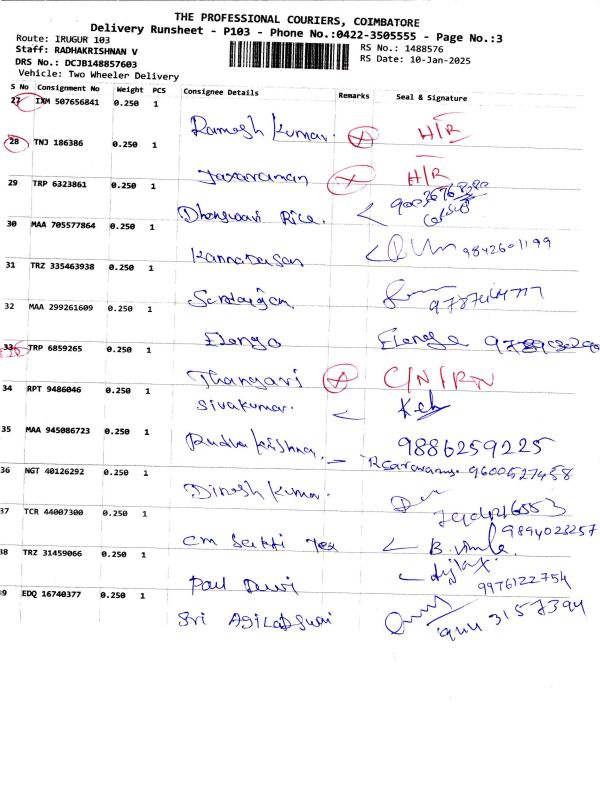 THE PROFESSIONAL COURIERS, COIMBATORE
Delivery Runsheet - P103 - Phone No.:0422-3505555 - Page No.:3
Route: IRUGUR 103
RS No.: 1488576
Staff: RADHAKRISHNAN V
RS Date: 10-Jan-2025
DRS No.: DCJB148857603
Vehicle: Two Wheeler Delivery
S No Consignment No Weight PCS Consignee Details Remarks Seal & Signature
27 IXM 507656841 0.250 1
Ramesh Kumar. H/R
28 TNJ 186386 0.250 1
Jayaraman H/R
29 TRP 6323861 0.250 1
Rice.
30 MAA 705577864 0.250 1
Kannadasan 9842601199
31 TRZ 335463938 0.250 1
32 MAA 299261609 0.250 1
Elango Elango
33 TRP 6859265 0.250 1
Thangavi C/N/RN
34 RPT 9486046 0.250 1
Sivakumar.
35 MAA 945086723 0.250 1
Rudra Krishna. 9886259225
36 NGT 40126292 0.250 1
9600527458
Dinesh Kumar.
37 TCR 44007300 0.250 1
9894023257
cm Sakthi Tex
38 TRZ 31459066 0.250 1
Paul Devi 9976122754
39 EDQ 16740377 0.250 1
Sri